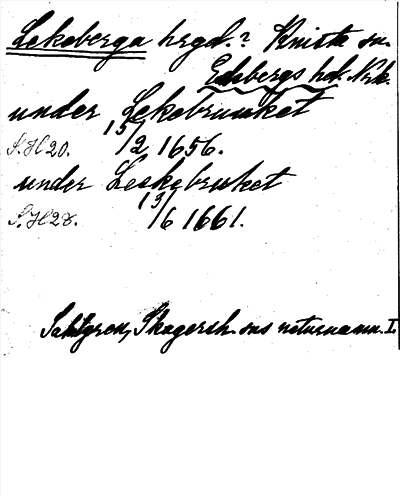 Lekeberga hrgd.? Knista sn.
Edsbergs hd. Nrk.
under Lekebruuket
S.H 20. 15/2 1656.
under Leekebruket
S.H 28. 13/6 1661.
Sahlgren, Skagersh. sns naturnamn. I.